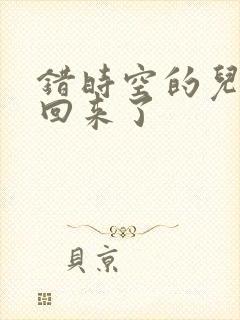 錯時空的兒
回来了
貝京